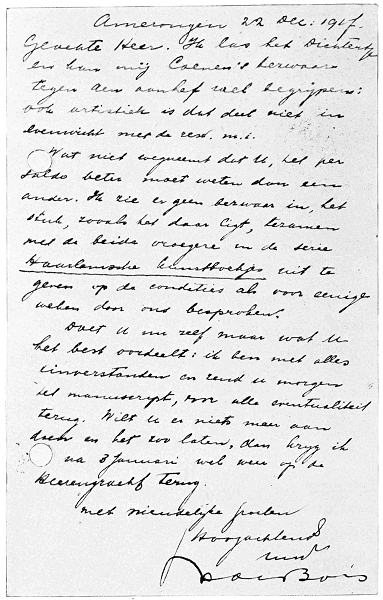 Amerongen 22 Dec. 1917.
Geachte Heer. Ik las het Dichtertje
en kan mij Coenen's bezwaar
tegen den aanhef wel begrijpen:
ook artistiek is dat deel niet in
evenwicht met de rest. m.i.
Wat niet wegneemt dat U, het per
saldo beter moet weten dan een
ander. Ik zie er geen bezwaar in, het
stuk, zooals het daar ligt, te zamen
met de beide vroegere in de serie
Haarlemsche Kunstboekjes uit te
geven op de condities als voor eenige
weken door ons besproken.
Doet U nu zelf maar wat U
het best oordeelt: ik ben met alles
inverstanden en zend u morgen
het manuscript, voor alle eventualiteit
terug. Wilt U er niets meer aan
doen en het zoo laten, dan kryg ik
na 3 Januari wel weer op de
Heerengracht terug.
met vriendelijke groeten
Hoogachtend
uw
DeBois